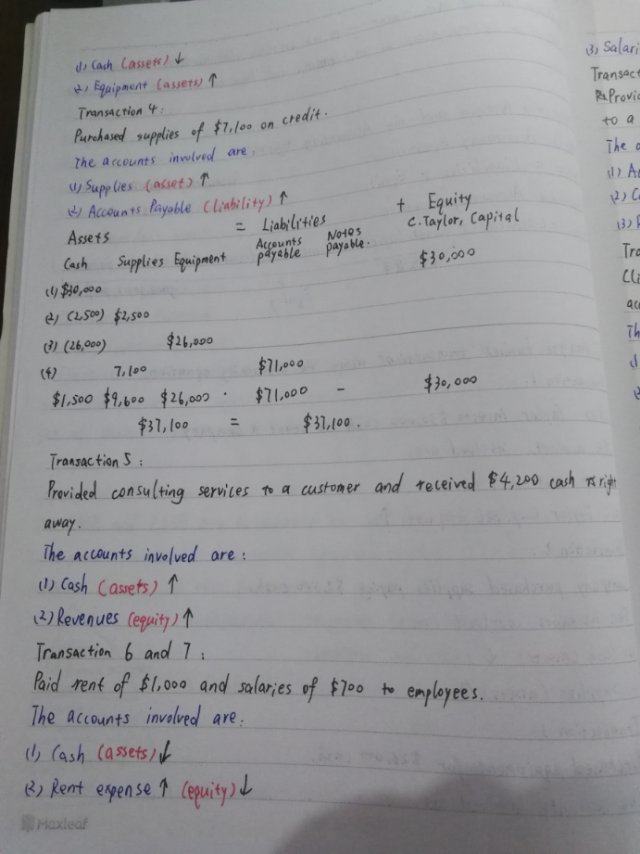 (1) Cash (assets) ↓
(2) Equipment (assets) ↑
Transaction 4:
Purchased supplies of $7,100 on credit.
The accounts involved are:
(1) Supplies (asset) ↑
(2) Accounts Payable (liability) ↑
Assets = Liabilities + Equity
Cash Supplies Equipment Accounts payable Notes payable. C. Taylor, Capital
(1) $30,000 $30,000
(2) (2,500) $2,500
(3) (26,000) $26,000
(4) 7,100 $71,000
$1,500 $9,600 $26,000 . $71,000 – $30,000
$37,100 = $37,100.
Transaction 5:
Provided consulting services to a customer and received $4,200 cash right
away.
The accounts involved are:
(1) Cash (assets) ↑
(2) Revenues (equity) ↑
Transaction 6 and 7:
Paid rent of $1,000 and salaries of $700 to employees.
The accounts involved are:
(1) Cash (assets) ↓
(2) Rent expense ↑ (equity) ↓
Maxleaf
(3) Salari
Transact
Provid
to a
The a
(1) A
(2) C
(3) R
Tra
Cli
ac
Th